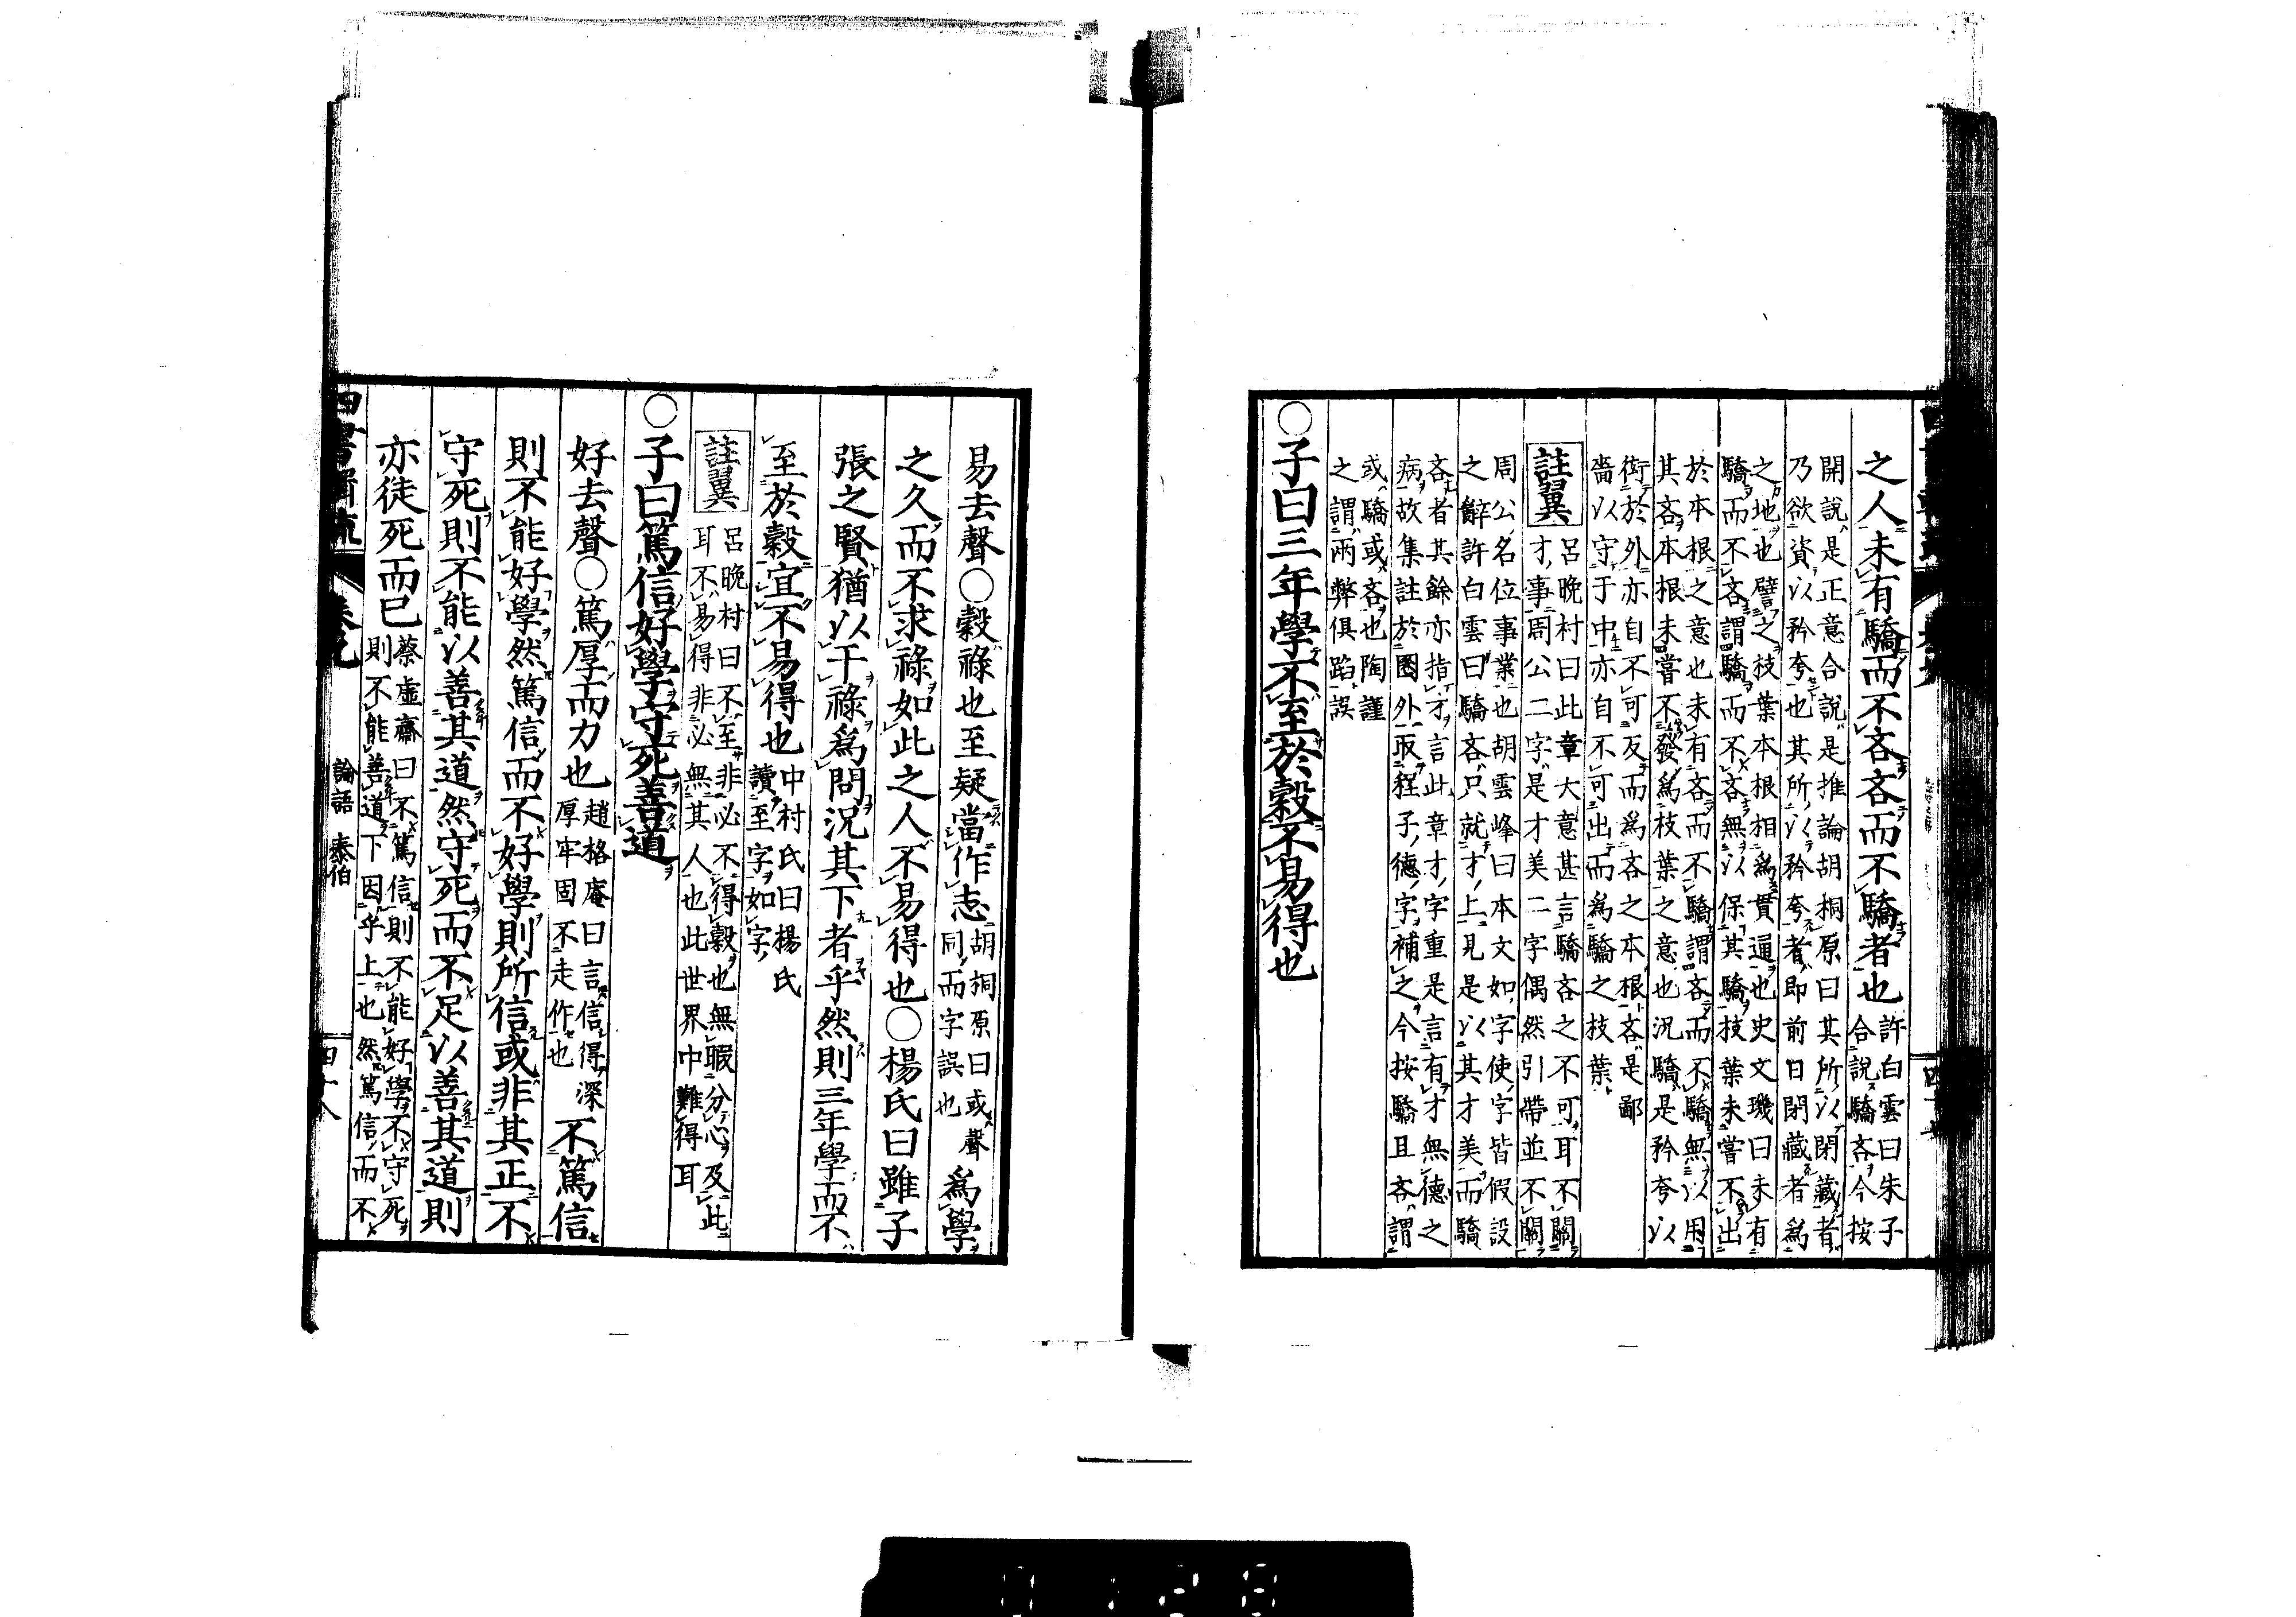 之人未有驕而不吝吝而不驕者也許白雲曰朱子
合說驕吝今按
開說是正意合說是推論胡桐原曰其所以閉藏者
乃欲資以矜夸也其所以矜夸者即前日閉藏者爲
之地也譬之枝葉本根相爲貫通也史文璣曰未有
驕而不吝謂驕而不吝無以保其驕枝葉未嘗不出
於本根之意也未有吝而不驕謂吝而不驕無以用
其吝本根未嘗不發爲枝葉之意也況驕是矜夸以
衒於外亦自不可反而爲吝之本根吝是鄙
嗇以守于中亦自不可出而爲驕之枝葉
註翼
呂晚村曰此章大意甚言驕吝之不可耳不關
才事周公二字是才美二字偶然引帶並不關
周公名位事業也胡雲峰曰本文如字使字皆假設
之辭許白雲曰驕吝只就才上見是以其才美而驕
吝者其餘亦指才言此章才字重是言有才無德之
病故集註於圈外取程子德字補之今按驕且吝謂
或驕或吝也陶謹
之謂兩弊俱蹈誤
○子曰三年學不至於穀不易得也
易去聲○穀祿也至疑當作志胡桐原曰或聲
同而字誤也
爲學
之久而不求祿如此之人不易得也○楊氏曰雖子
張之賢猶以干祿爲問況其下者乎然則三年學而不
至於穀宜不易得也中村氏曰楊氏
讀至字如字
註翼
呂晚村曰不至非必不得穀也無暇分心及此
耳不易得非必無其人也此世界中難得耳
○子曰篤信好學守死善道
好去聲○篤厚而力也趙格庵曰言信得深
厚牢固不走作也
不篤信
則不能好學然篤信而不好學則所信或非其正不
守死則不能以善其道然守死而不足以善其道則
亦徒死而已蔡虛齋曰不篤信則不能好學不守死
則不能善道下因乎上也然篤信而不
論語 泰伯
四十八